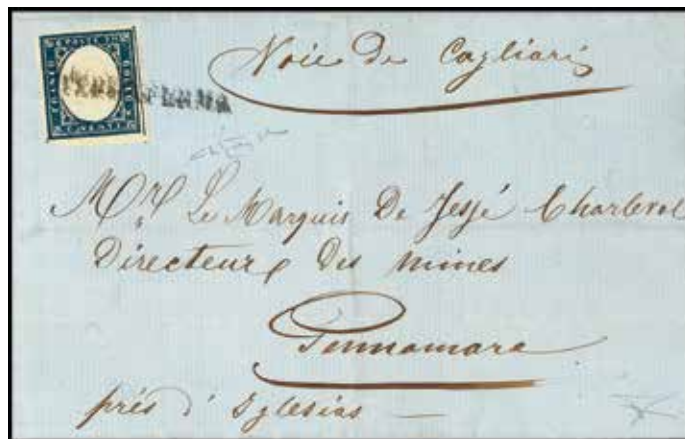 Voie de Cagliari
FERMA
Mr. Le Marquis De Jessé Charleval
Directeur des mines
Gonnamara
près d'Iglesias